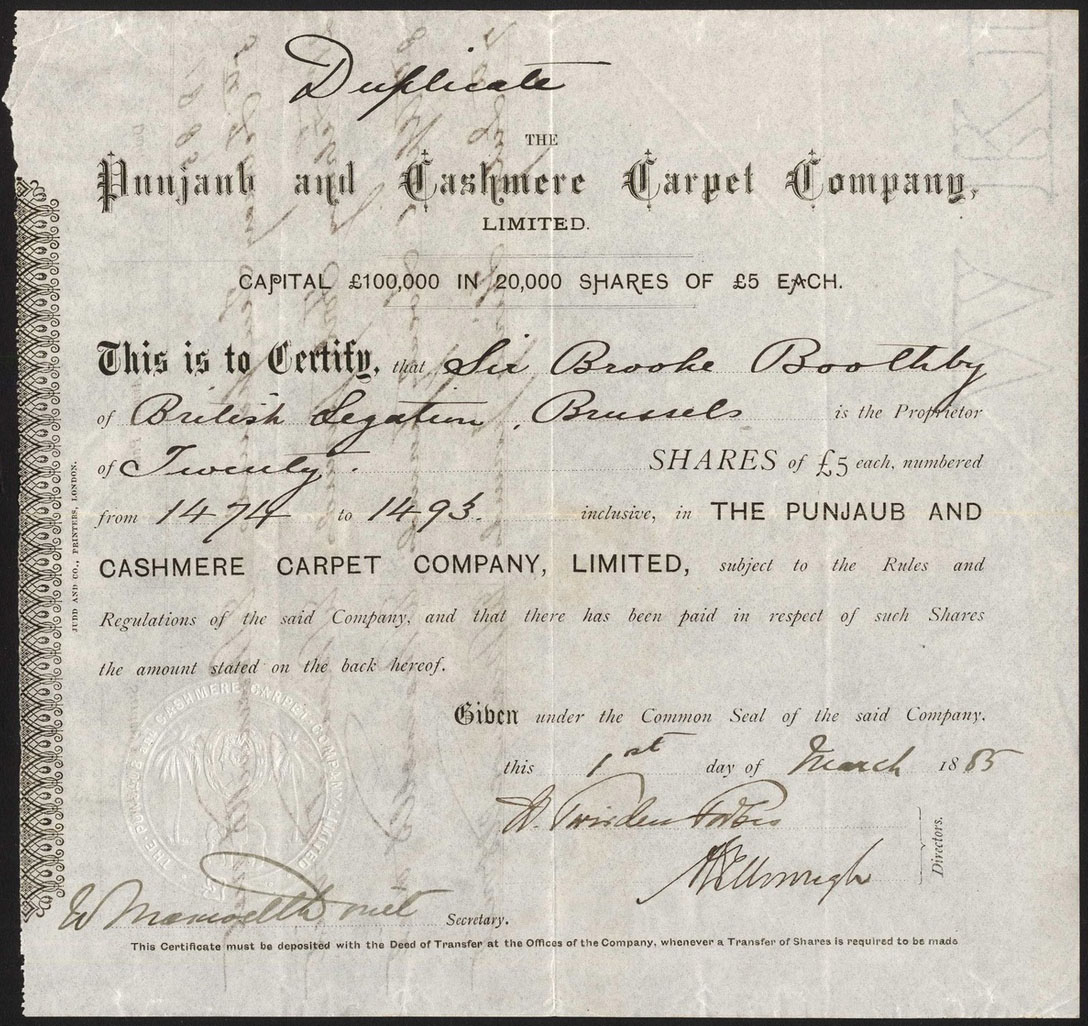 Duplicate
THE
Punjaub and Cashmere Carpet Company,
LIMITED.
CAPITAL £100,000 IN 20,000 SHARES OF £5 EACH.
This is to Certify, that Sir Brooke Boothby
of British Legation, Brussels is the Proprietor
of Twenty. SHARES of £5 each, numbered
from 1474 to 1493. inclusive, in THE PUNJAUB AND
CASHMERE CARPET COMPANY, LIMITED, subject to the Rules and
Regulations of the said Company, and that there has been paid in respect of such Shares
the amount stated on the back hereof.
Given under the Common Seal of the said Company.
this 1st day of March 1885
Directors.
Secretary.
This Certificate must be deposited with the Deed of Transfer at the Offices of the Company, whenever a Transfer of Shares is required to be made
JUDD AND CO., PRINTERS, LONDON.
THE PUNJAUB AND CASHMERE CARPET COMPANY LIMITED